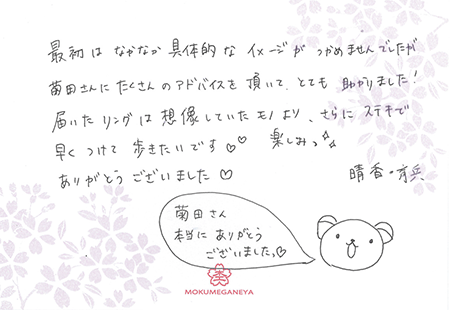 最初は なかなか 具体的な イメージが つかめませんでしたが
菊田さんに たくさんの アドバイスを 頂いて、とても 助かりました！
届いた リングは 想像していた モノ より、さらに ステキで
早く つけて 歩きたいです♡♡ 楽しみっ
ありがとう ございました ♡
晴香・
菊田さん
本当に ありがとう
ございましたっ♡
MOKUMEGANEYA